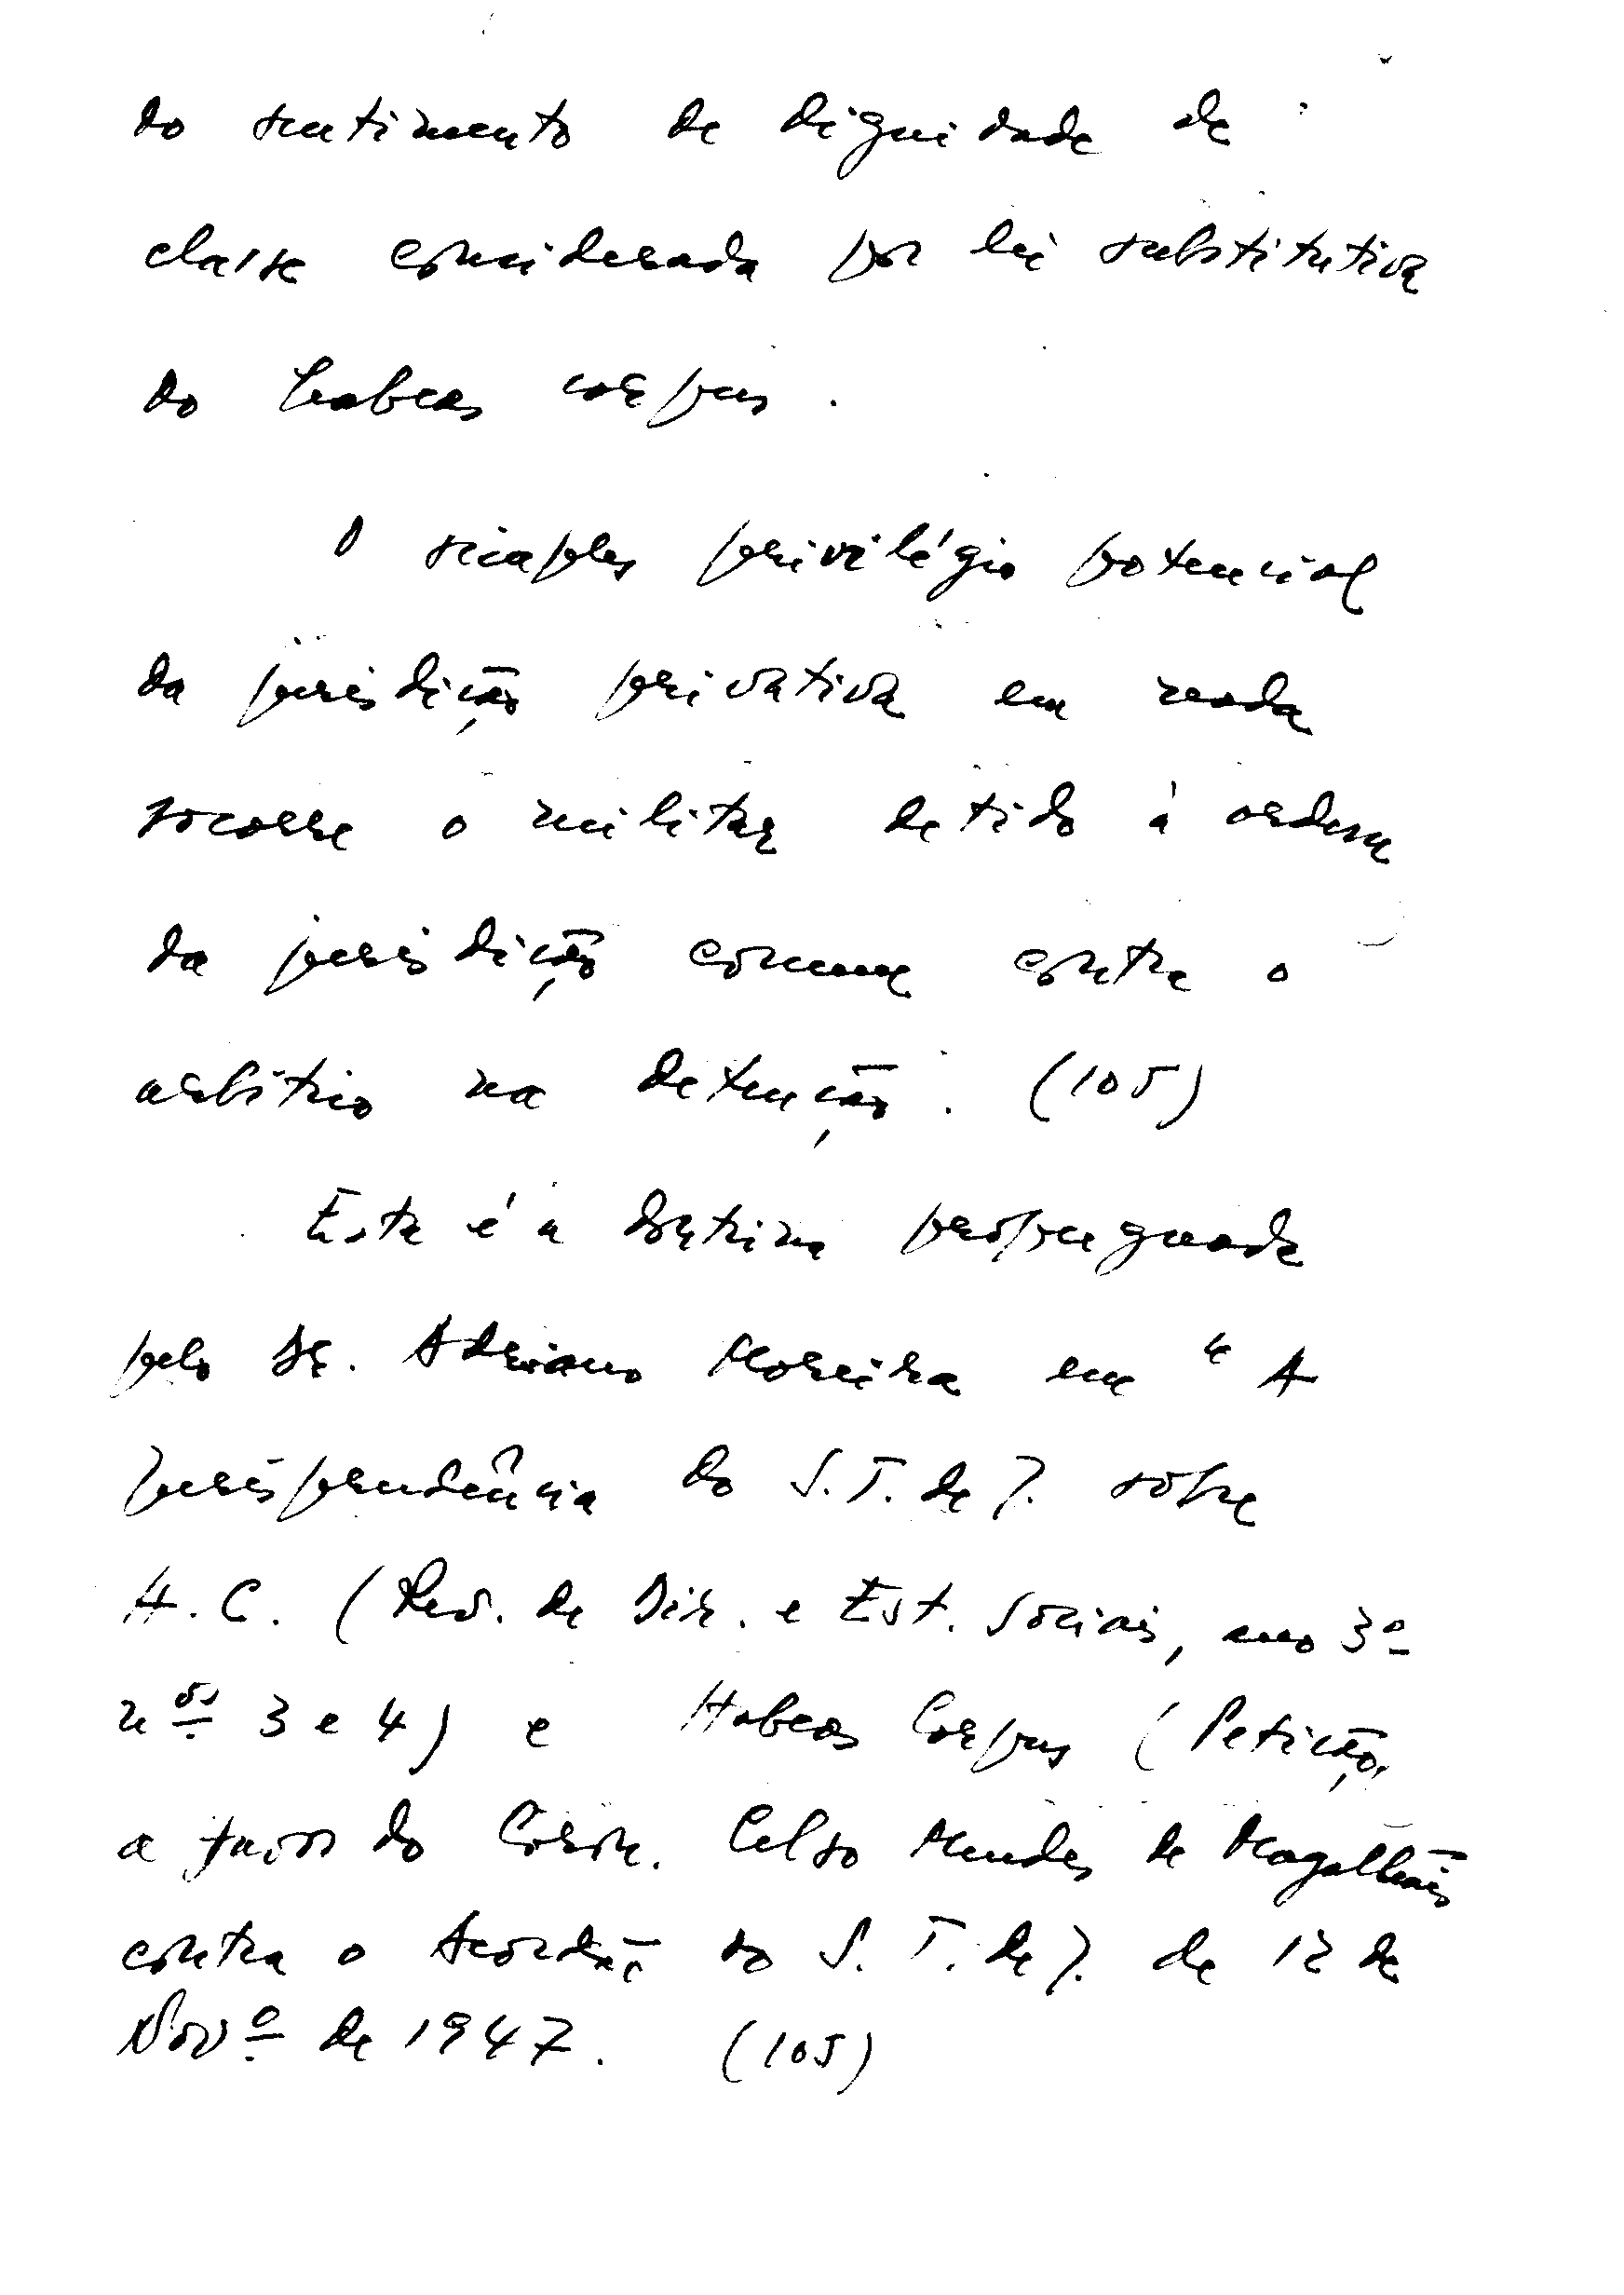 do sentimento de dignidade de
classe considerada por lei substitutiva
do habeas corpus.
O simples privilégio potencial
da jurisdição privativa em nada
socorre o militar detido à ordem
da jurisdição comum contra o
arbítrio na detenção. (105)
Esta é a doutrina propugnada
pelo Dr. Adriano Moreira em "A
jurisprudência do S.T. de J. sobre
H.C. (Rev. de Dir. e Est. Sociais, ano 3º
nºs 3 e 4) e Habeas Corpus (Petição,
a favor do Coron. Celso Mendes de Magalhães
contra o Acordão do S.T. de J. de 12 de
Novº de 1947. (105)